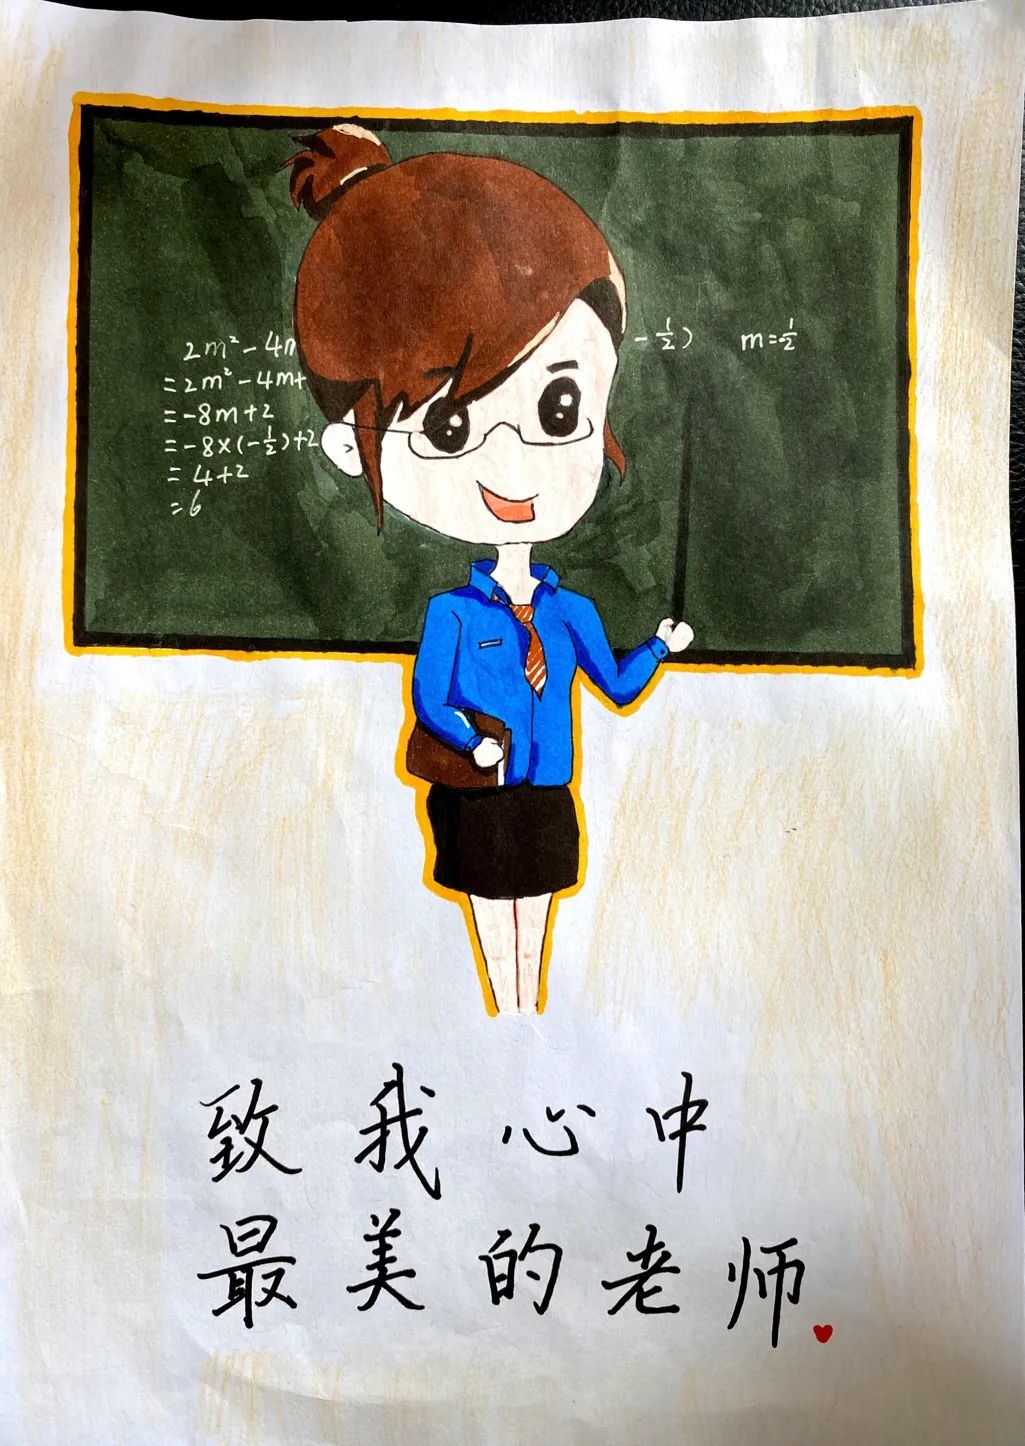 2m² - 4m - ½) m=½
=2m² - 4m+
=-8m+2
=-8×(-½)+2
= 4+2
=6
致我心中
最美的老师